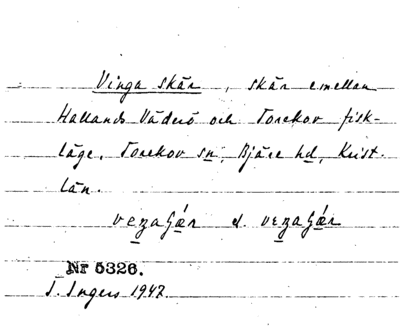 Vinga skär, skär emellan
Hallands Väderö och Torekov fisk-
läge, Torekov sn, Bjäre hd, Krist.
län.
el.
Nr 5326.
I. Ingers 1942